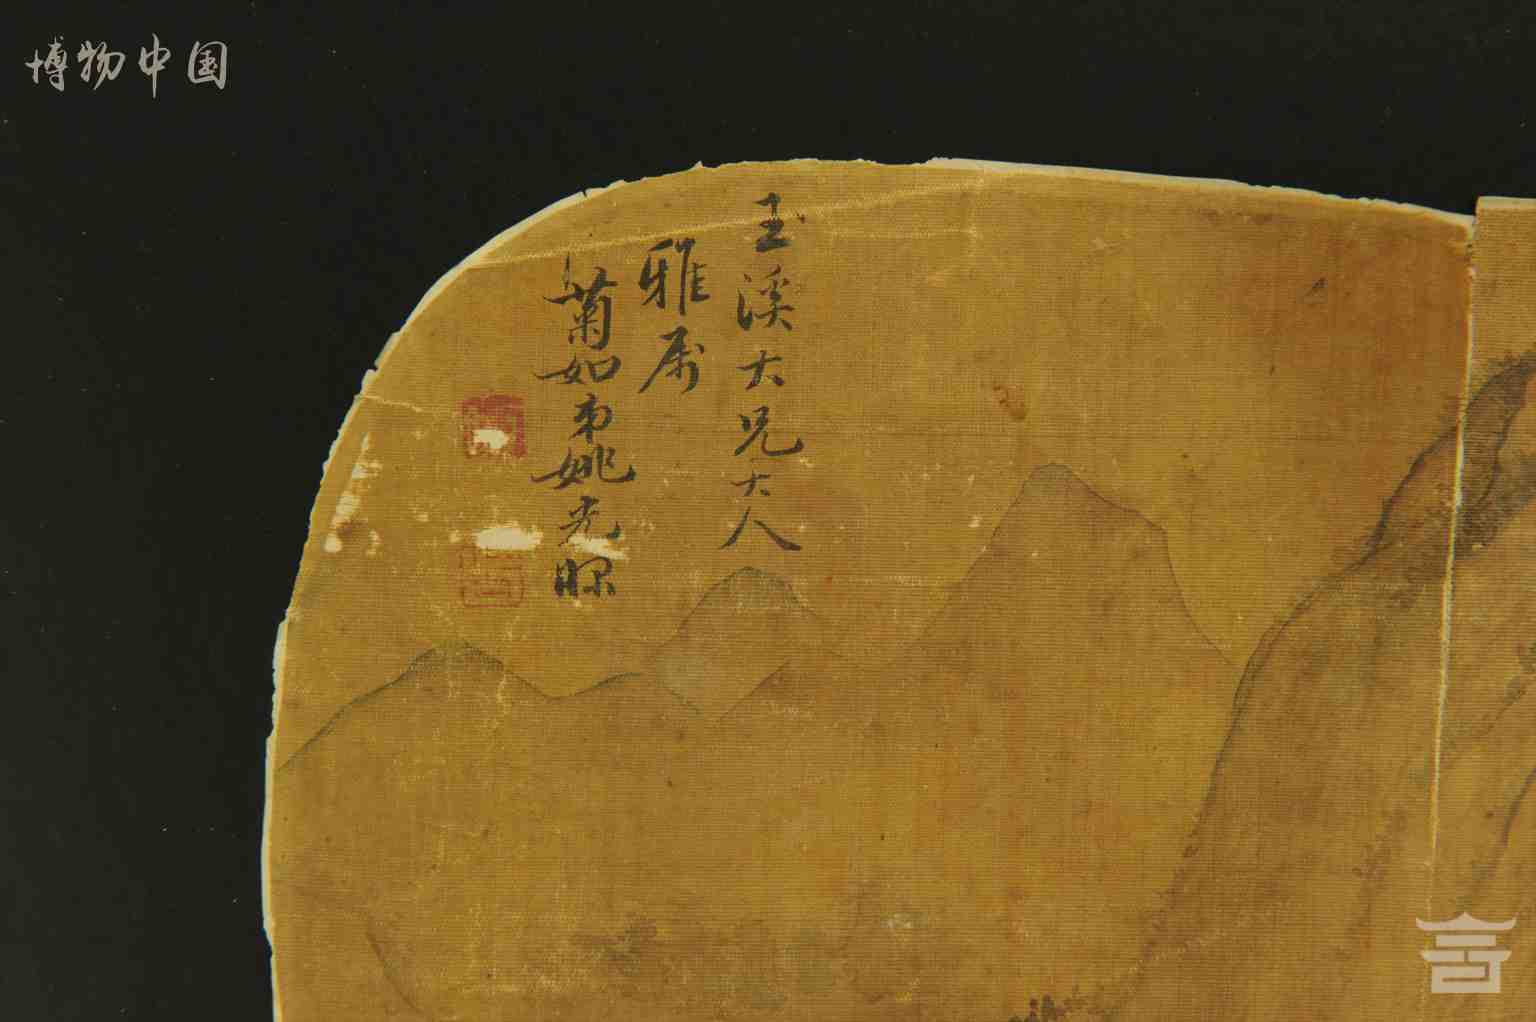 博物中国
玉溪大兄大人
雅属
菊如弟姚光